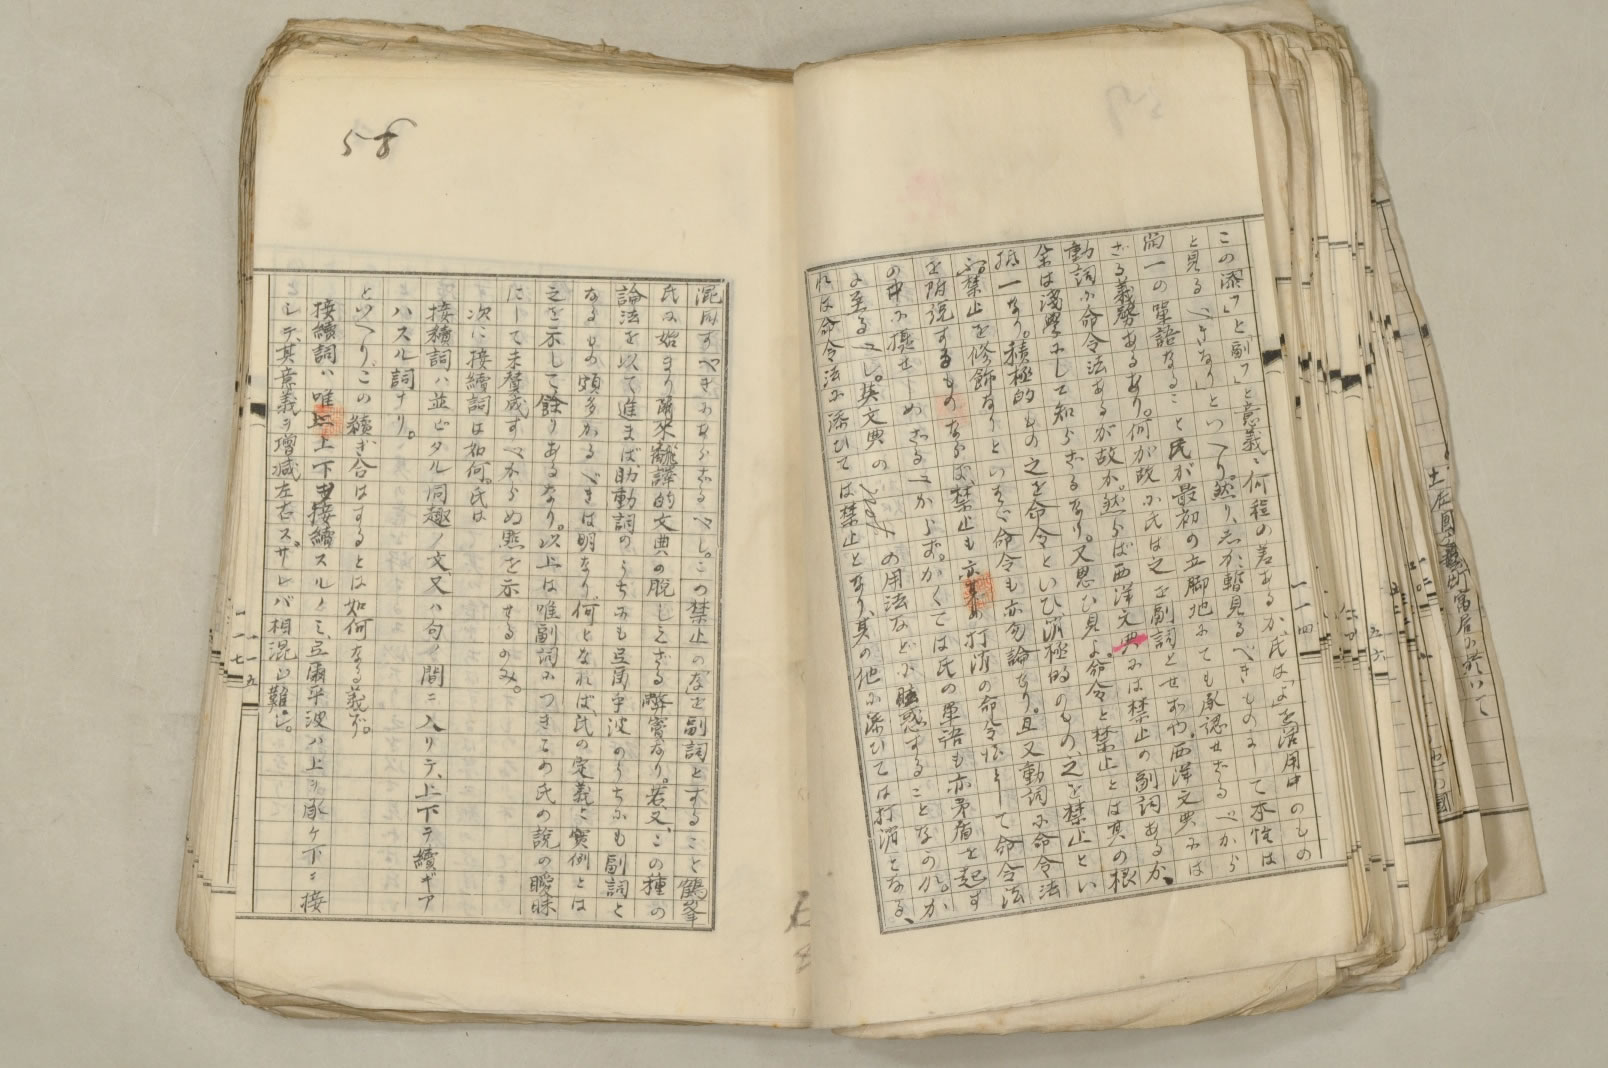 この添「フ」と副「フ」と意義に何程の差あるか、氏は「よ」を活用中のもの
と見るべきなり」といへり然り、志か暫見るべきものにして本性は
尚一の單語なること氏が最初の立脚地にても承認せざるべから
ざる義務あるあり。何が故に氏は之を副詞とせずや。西洋文典には
動詞に命令法あるが故か。然らば西洋文典には禁止の副詞あるか、
余は淺學にして知らざるなり。又思ひ見よ命令と禁止とは其の根
抵一なり。積極的のもの之を命令といひ消極的のもの、之を禁止とい
ふ。禁止を修飾なりといはゞ命令も亦勿論なり。且又動詞に命令法
を附説するものならば禁止も亦 打消の命令 として命令法
の中に攝せしめざるべからず。かくては氏の單語も亦矛盾を起す
に至るべし。英文典の の用法などに眩惑することなのれ。か
れは命令法に添ひては禁止となり、其の他に添ひては打消となる、
一一四
58
混同すべきにあらざるべし。この禁止のなを副詞とすること鶴峯
氏に始まり爾來飜譯的文典の脱しえざる弊竇なり。若又、この種の
論法を以て進まば助動詞のうちにも弖爾乎波のうちにも副詞と
なるもの頗多かるべきは明なり。何となれば氏の定義と實例とは
之を示して餘りあるなり。以上は唯副詞につきこの氏の説の曖昧
にして未贊成すべからぬ點を示せるのみ。
次に接續詞は如何。氏は
接續詞ハ並ビタル同趣ノ文、又ハ句ノ間ニ入リテ、上下ヲ續ギア
ハスル詞ナリ。
といへり、この續ぎ合はするとは如何なる義ぞ。
接續詞ハ唯上下ヲ接續スルノミ、弖爾乎波ハ上ヲ承ケ下ニ接
シテ、其意義ヲ增減左右ス。サレバ相混じ難シ。
一一五
一一七